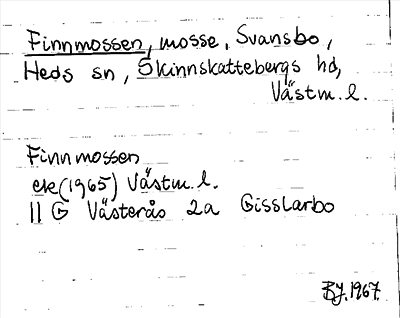 Finnmossen, mosse, Svansbo,
Heds sn, Skinnskattebergs hd,
Västm. l.
Finnmossen
ek (1965) Västm. l.
11 G Västerås 2a Gisslarbo
BJ. 1967.